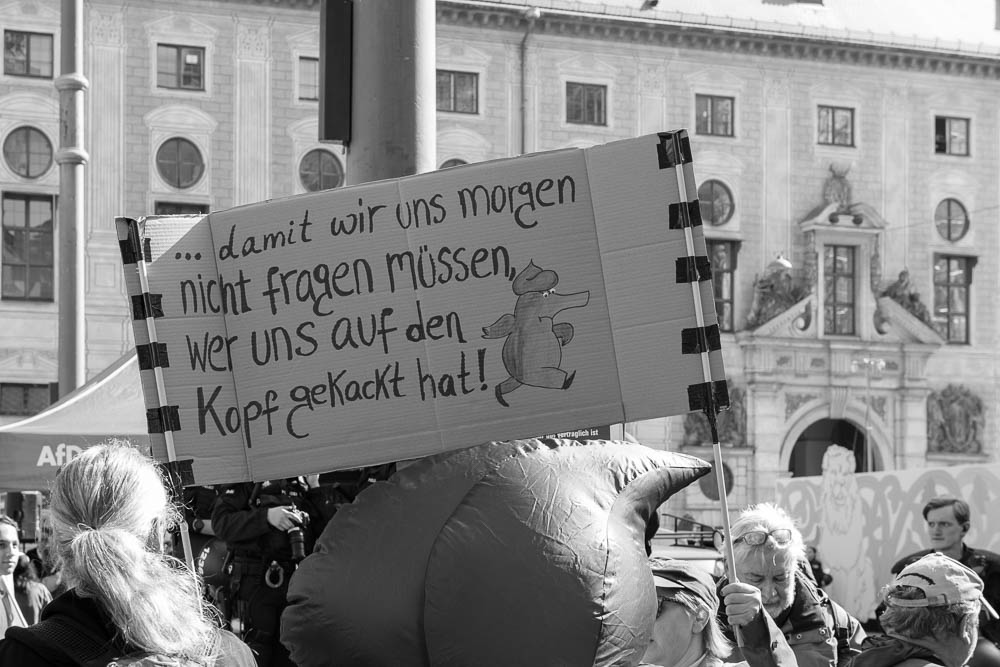 ... damit wir uns morgen
nicht fragen müssen,
wer uns auf den
Kopf gekackt hat!
AfD
vertraglich ist